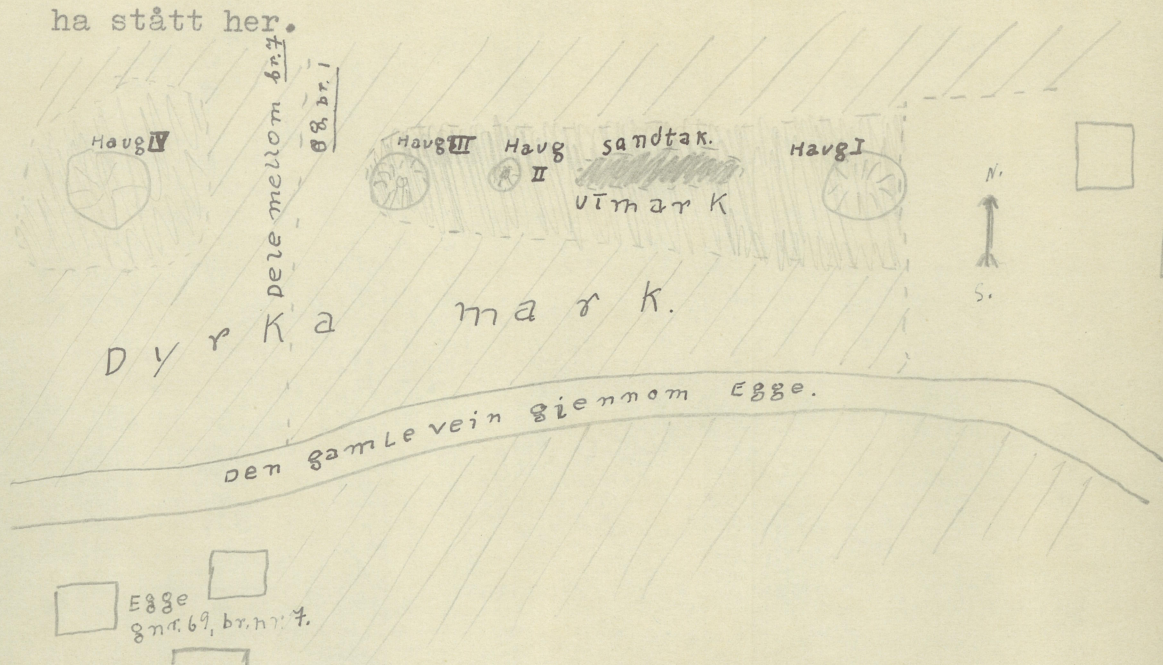 ha stått her.
Dele mellom br.7
og br.1
Haug IV
Haug III
Haug
II
sandtak.
Haug I
utmark
N.
S.
Dyrka mark.
Den gamle vein giennom Egge.
Egge
gnr. 69, br.nr. 7.